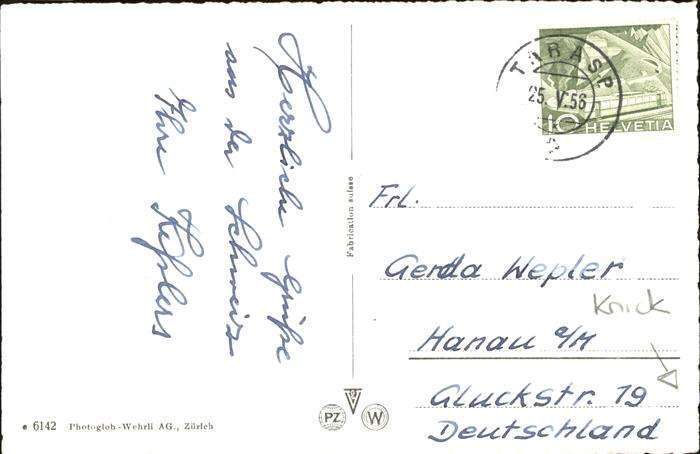 Herzliche Grüße
aus der Schweiz
Ihre Keßlers
Fabrication suisse
TARASP
25. V. 56
10 HELVETIA
Frl.
Gerda Wepler
Knick
Hanau a/M
Gluckstr. 19
Deutschland
PZ W
6142 Photoglob-Wehrli AG., Zürich